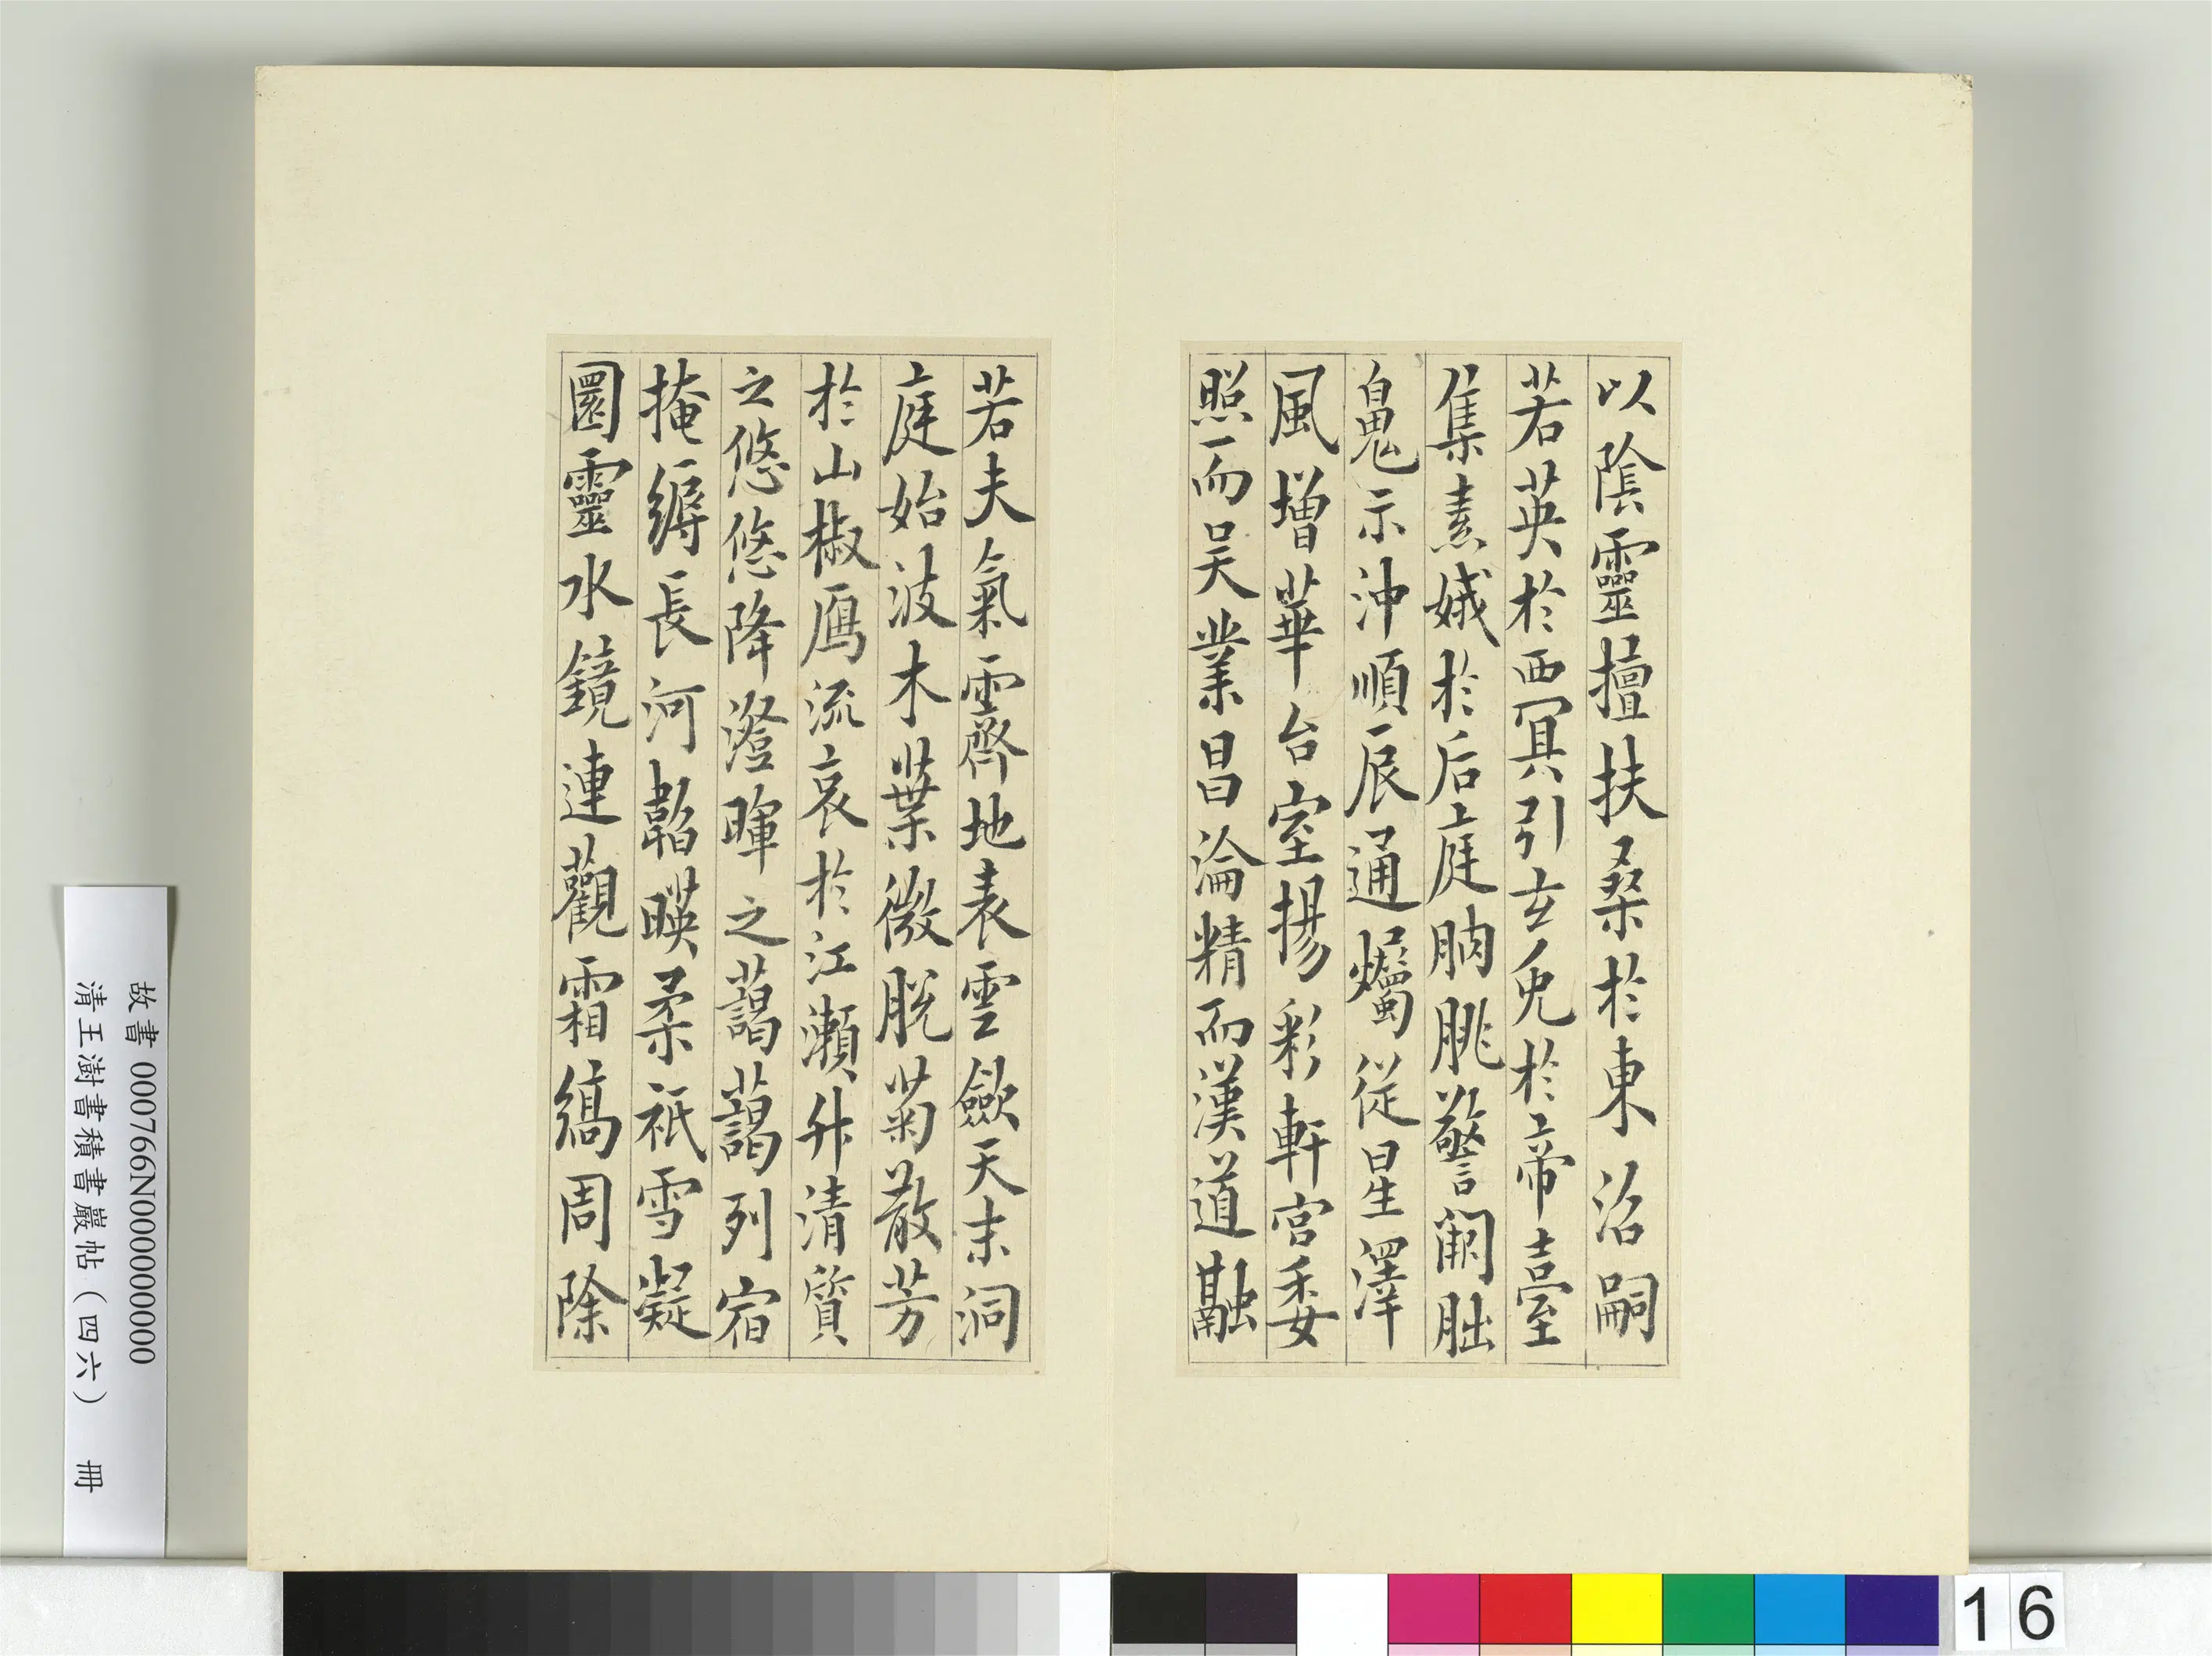 以陰靈擅扶桑於東沼嗣
若英於西冥引玄兔於帝臺
集素娥於后庭朒朓警闕朏
魄示沖順辰通爥從星澤
風增華台室揚彩軒宮委
照而吳業昌淪精而漢道融
若夫氣霽地表雲斂天末洞
庭始波木葉微脫菊散芳
於山椒鴈流哀於江瀨升清質
之悠悠降澄暉之藹藹列宿
掩縟長河韜暎柔祇雪凝
圜靈水鏡連觀霜縞周除
故書 000766N000000000
清王澍書積書巖帖(四六) 冊
16